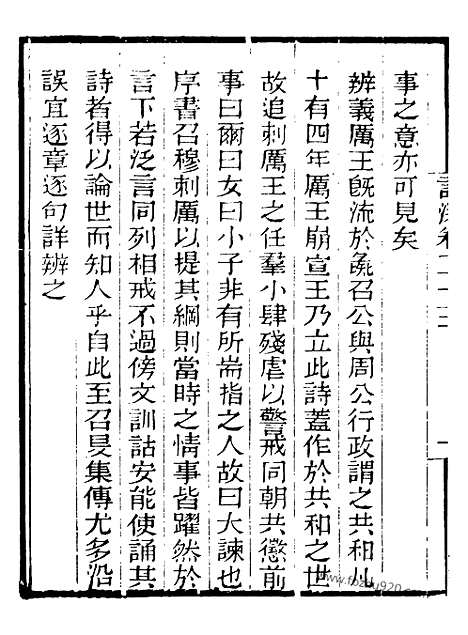 事之意亦可見矣
辨義厲王既流於彘召公與周公行政謂之共和凡
十有四年厲王崩宣王乃立此詩蓋作於共和之世
故追刺厲王之任羣小肆殘虐以警戒同朝共懲前
事曰爾曰女曰小子非有所耑指之人故曰大諫也
序書召穆刺厲以提其綱則當時之情事皆躍然於
言下若泛言同列相戒不過傍文訓詁安能使誦其
詩者得以論世而知人乎自此至召旻集傳尤多沿
誤宜逐章逐句詳辨之